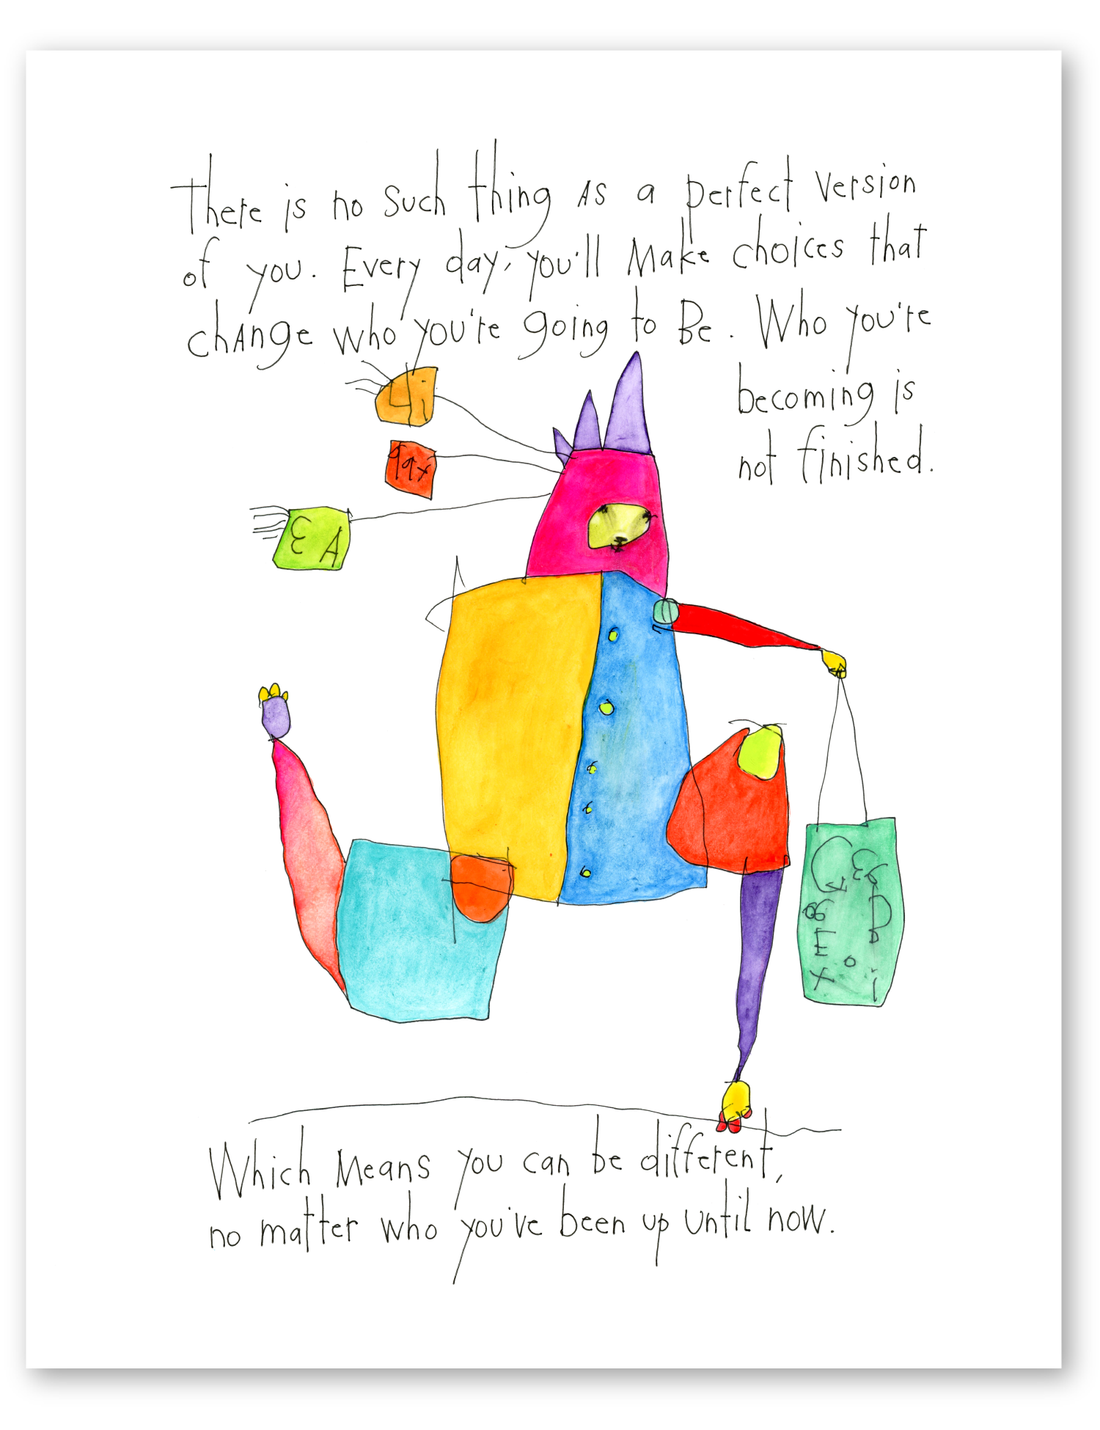 There is no such thing as a perfect version
of you. Every day, you'll make choices that
change who you're going to be. Who you're
becoming is
not finished.
4i
99x
EA
Which means you can be different,
no matter who you've been up until now.